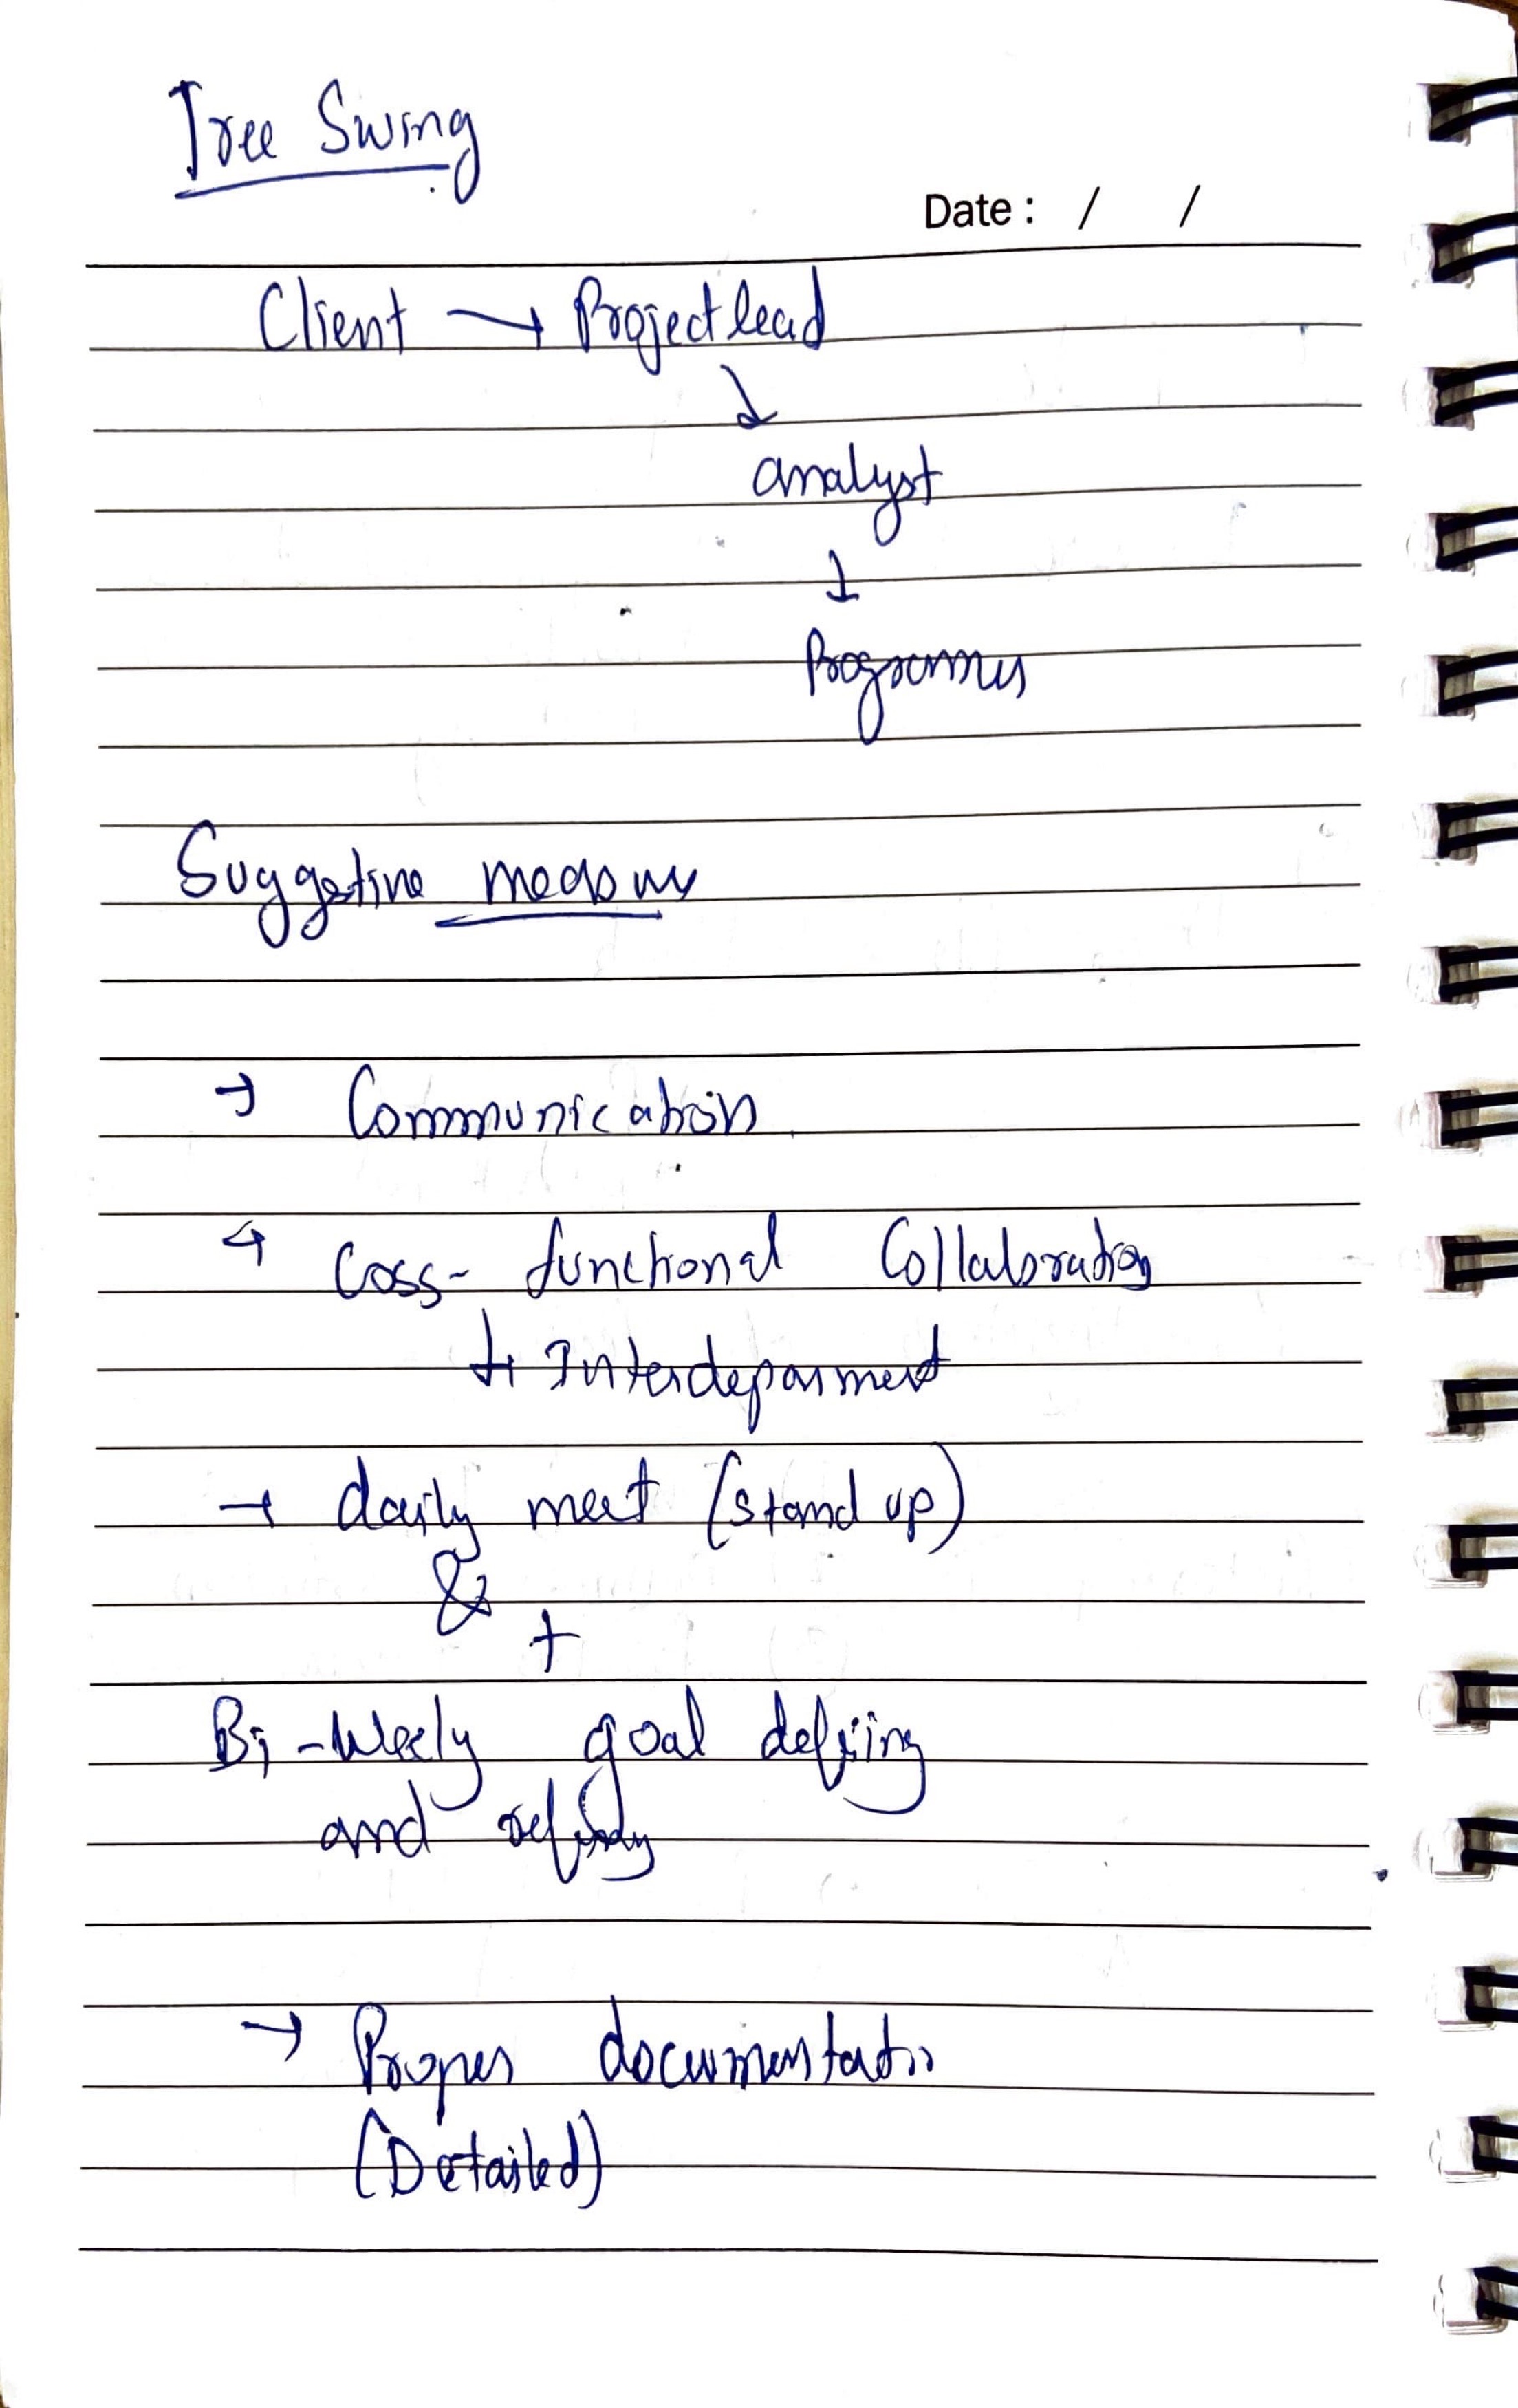 Tree Swing
Date : / /
Client → Project lead
↓
analyst
↓
Programmer
Suggestive measures
→ Communication
→ Coss- functional Collaboration
↳ Interdeparment
→ daily meet (stand up)
&
+
Bi-Weely goal defining
and
→ Proper documentatio
(Detailed)